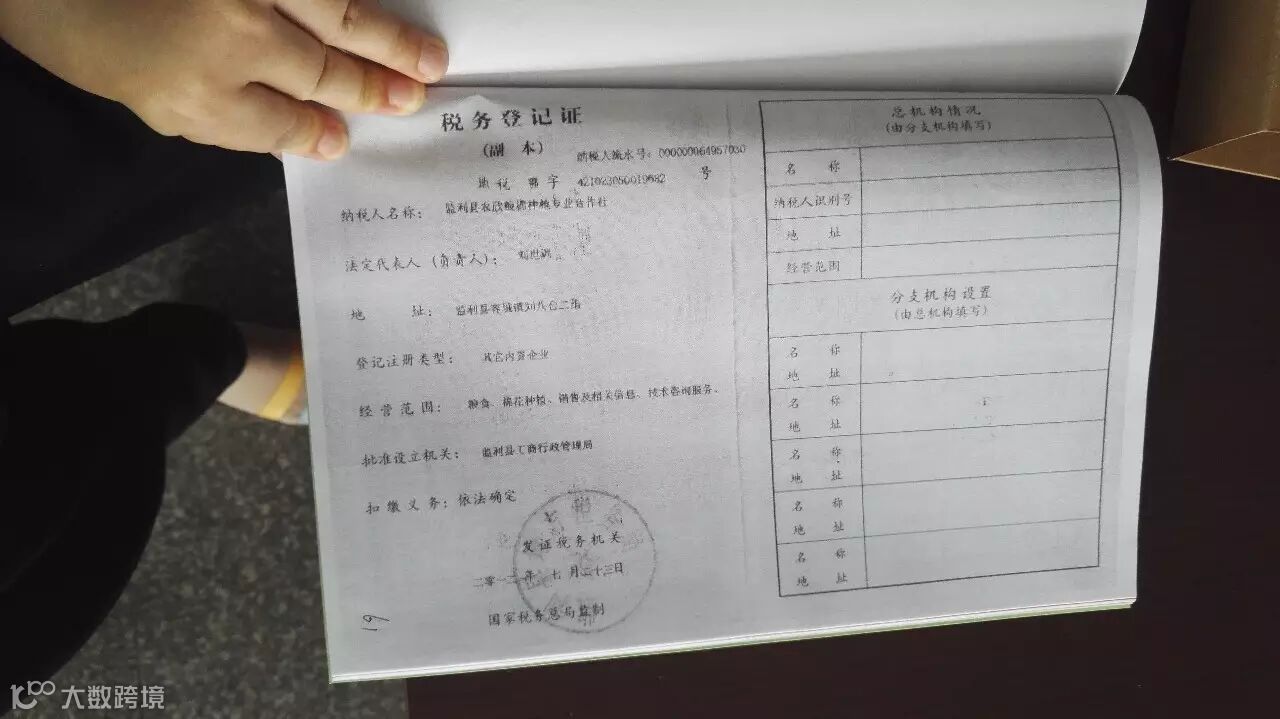 税务登记证
(副 本)
纳税人流水号：000000064957030
地 税 鄂 字 421023050019682 号
纳税人名称：监利县农欣 种植专业合作社
法定代表人（负责人）：
地 址：监利县容城镇刘八台二
登记注册类型：其它内资企业
经 营 范 围：粮食、棉花种植、销售及相关信息、技术咨询服务、
批准设立机关：监利县工商行政管理局
扣 缴 义 务：依法确定
发证税务机关
二零一 年 七 月二十三日
国家税务总局监制
19
总机构情况
(由分支机构填写)
名 称
纳税人识别号
地 址
经营范围
分支机构设置
(由总机构填写)
名 称
地 址
名 称
地 址
名 称
地 址
名 称
地 址
名 称
地 址
大数跨境